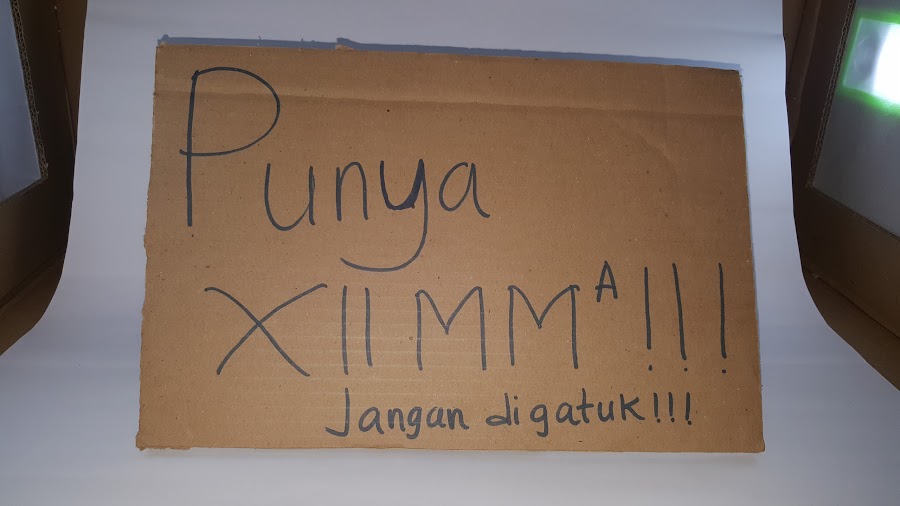 Punya
XII MM A !!!
Jangan digatuk!!!